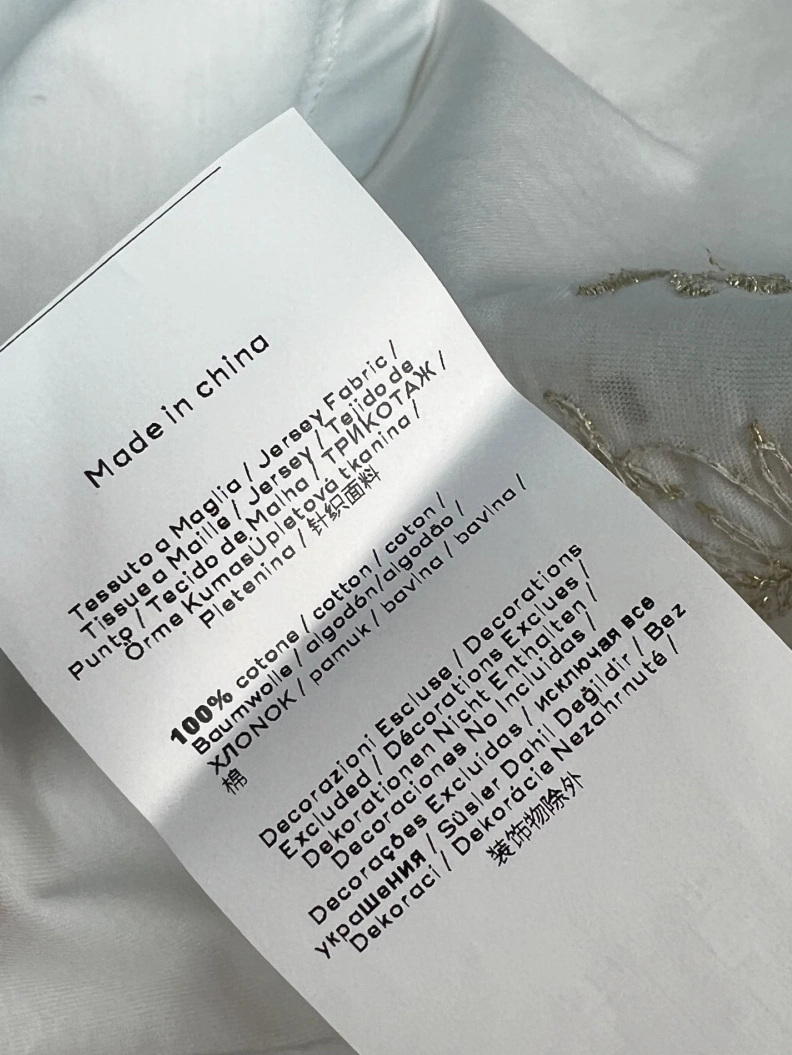 Made in china
Tessuto a Maglia / Jersey Fabric /
Tissue a Maille / Jersey / Tejido de
Punto / Tecido de Malha / ТРИКОТАЖ /
Örme KumasÚpletová tkanina /
Pletenina / 针织面料
100% cotone / cotton / coton /
Baumwolle / algodón/algodão /
ХЛОNОK / pamuk / bavlna / bavlna /
棉
Decorazioni Escluse / Decorations
Excluded / Décorations Exclues /
Dekorationen Nicht Enthalten /
Decoraciones No Incluidas /
Decorações Excluidas / исключая все
украшения / Süsler Dahil Değildir / Bez
Dekoraci / Dekorácie Nezahrnuté /
装饰物除外